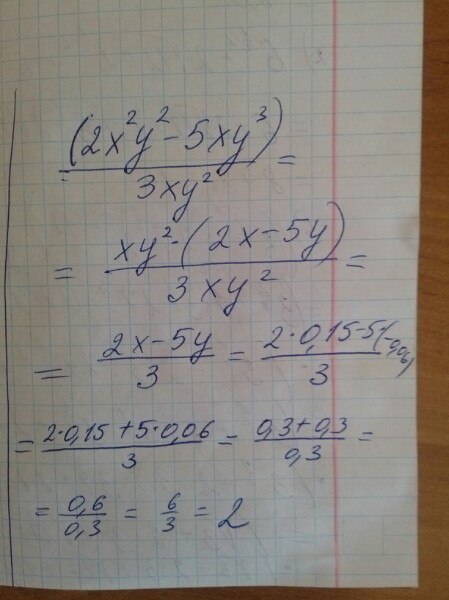 (2x²y² - 5xy³) / 3xy² =
= xy² · (2x - 5y) / 3xy² =
= (2x - 5y) / 3 = 2·0,15 - 5(-0,06) / 3
= 2·0,15 + 5·0,06 / 3 = 0,3 + 0,3 / 0,3 =
= 0,6 / 0,3 = 6 / 3 = 2